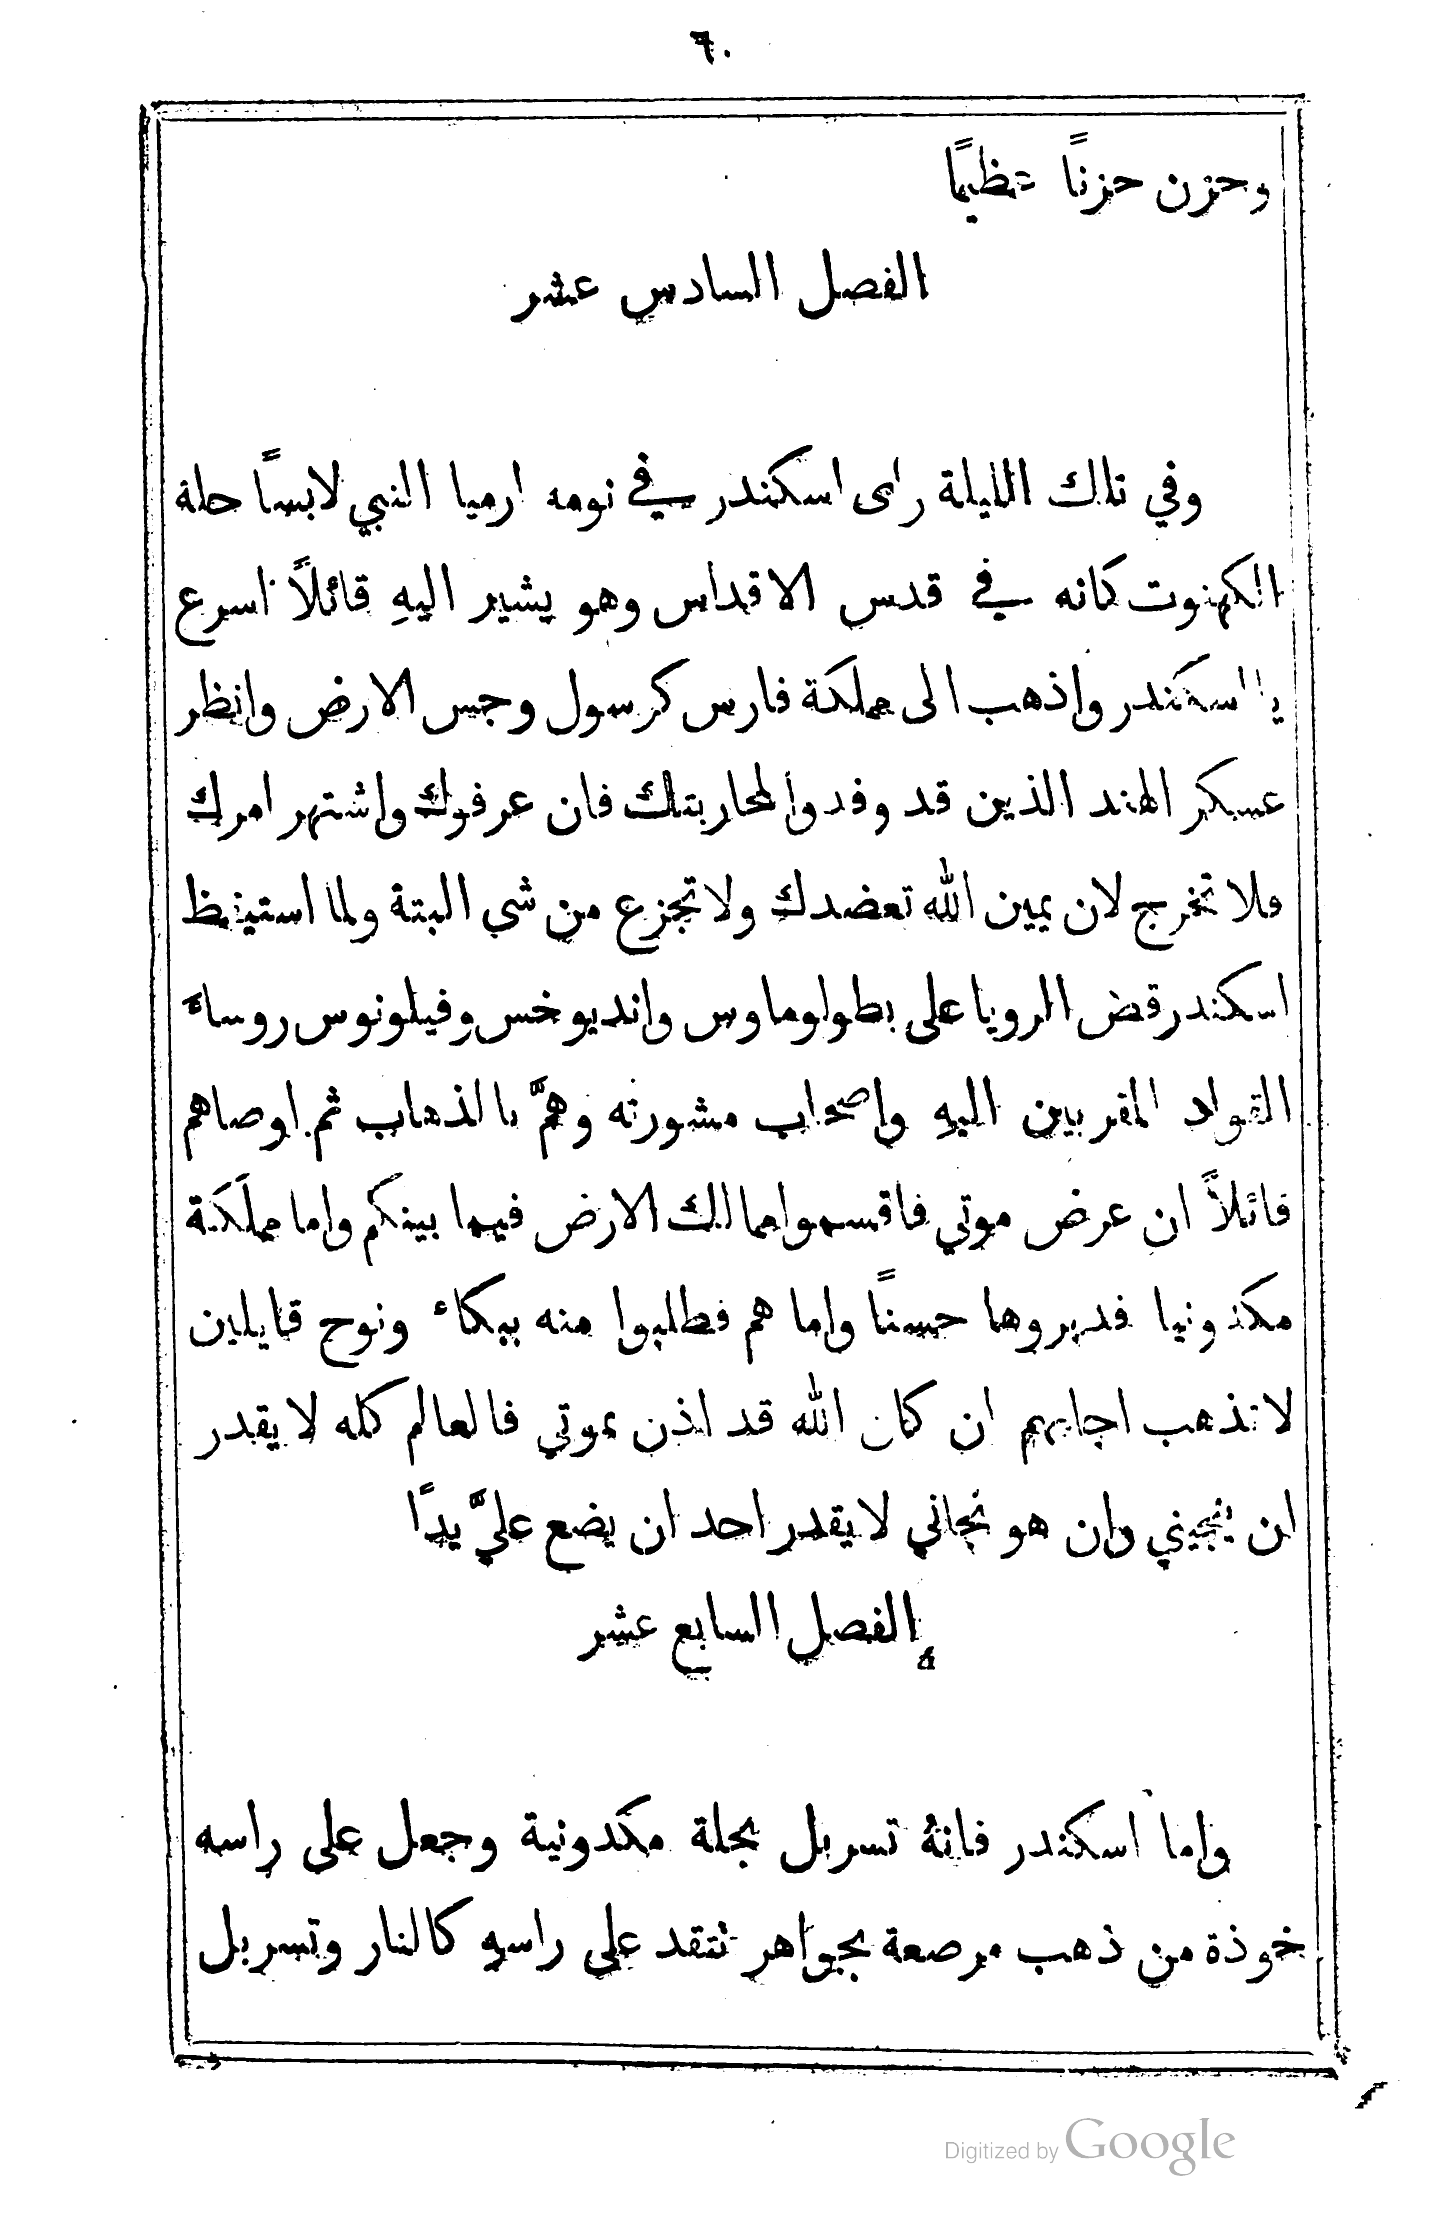 ٦٠
وحزن حزنًا عظيمًا
الفصل السادس عشر
وفي تلك الليلة راى اسكندر في نومه ارميا النبي لابسًا حلة
الكهنوت كانه في قدس الاقداس وهو يشير اليهِ قائلاً اسرع
يا اسكندر واذهب الى مملكة فارس كرسول وجس الارض وانظر
عسكر الهند الذين قد وفدوا لمحاربتك فان عرفوك واشتهر امرك
فلا تخرج لان يمين الله تعضدك ولا تجزع من شي البتة ولما استيقظ
اسكندر قض الرويا على بطولوماوس وانديوخس وفيلونوس روساءَ
القواد المقربين اليهِ واصحاب مشورته وهمَّ بالذهاب ثم اوصاهم
قائلاً ان عرض موتي فاقسموا ممالك الارض فيما بينكم واما مملكة
مكدونيا فدبروها حسنًا واما هم فطلبوا منه ببكاء ونوح قايلين
لا تذهب اجابهم ان كان الله قد اذن بموتي فالعالم كله لا يقدر
ان ينجيني وان هو نجاني لا يقدر احد ان يضع عليَّ يدًا
الفصل السابع عشر
واما اسكندر فانهُ تسربل بحلة مكدونية وجعل على راسه
خوذة من ذهب مرصعة بجواهر تتقد على راسهِ كالنار وتسربل
Digitized by Google